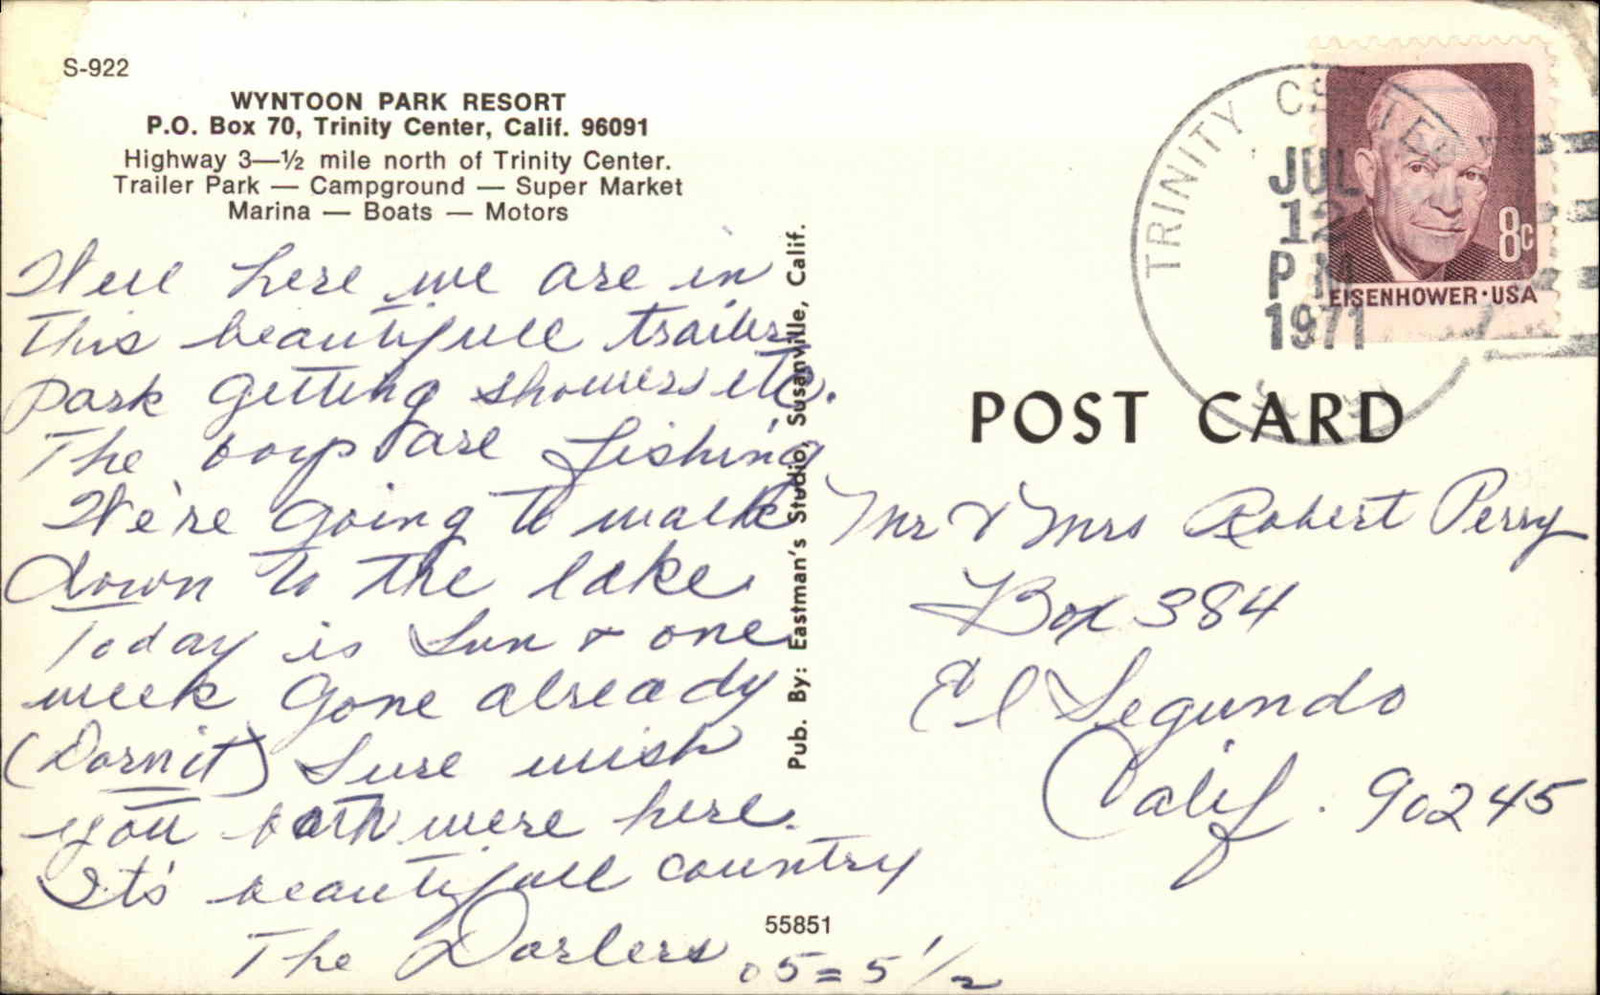 S-922
WYNTOON PARK RESORT
P.O. Box 70, Trinity Center, Calif. 96091
Highway 3—½ mile north of Trinity Center.
Trailer Park — Campground — Super Market
Marina — Boats — Motors
Well here we are in
this beautifull trailer
park getting showers etc.
The boys are fishing
We're going to walk
down to the lake
Today is Sun & one
week gone already
(Darnit) Sure wish
you both were here.
It's beautifull country
The Darlers
55851
05=5½
Pub. By: Eastman's Studio, Susanville, Calif.
TRINITY CENTER
JUL
12
PM
1971
8c
EISENHOWER·USA
POST CARD
Mr & Mrs Robert Perry
Box 384
El Segundo
Calif. 90245